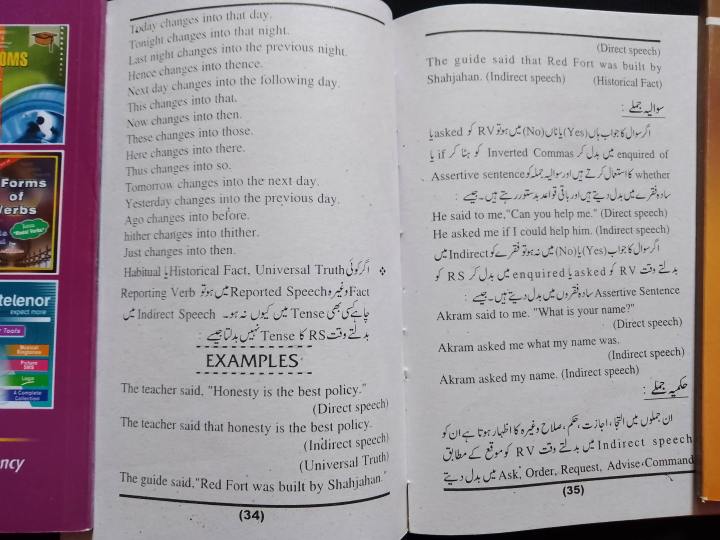 OMS
Forms
of
Verbs
telenor
expect more
Tools
Musical
Ringtones
Picture
SMS
Logo
A Complete
Collection
ncy
Today changes into that day.
Tonight changes into that night.
Last night changes into the previous night.
Hence changes into thence.
Next day changes into the following day.
This changes into that.
Now changes into then.
These changes into those.
Here changes into there.
Thus changes into so.
Tomorrow changes into the next day.
Yesterday changes into the previous day.
Ago changes into before.
hither changes into thither.
Just changes into then.
❖ اگر کوئی Historical Fact, Universal Truth یا Habitual
Fact وغیرہ Reported Speech میں ہو تو Reporting Verb
چاہے کسی بھی Tense میں کیوں نہ ہو۔ Indirect Speech میں
بدلتے وقت RS کا Tense نہیں بدلتا جیسے :
EXAMPLES
The teacher said, "Honesty is the best policy."
(Direct speech)
The teacher said that honesty is the best policy.
(Indirect speech)
(Universal Truth)
The guide said,"Red Fort was built by Shahjahan."
(34)
(Direct speech)
The guide said that Red Fort was built by
Shahjahan. (Indirect speech) (Historical Fact)
سوالیہ جملے :
اگر سوال کا جواب ہاں (Yes) یا ناں (No) میں ہو تو RV کو asked یا
enquired of میں بدل کر Inverted Commas کو ہٹا کر if یا
whether کا استعمال کرتے ہیں اور سوالیہ جملہ کو Assertive sentence
سادہ فقرے میں بدل دیتے ہیں اور باقی قواعد بدستور رہتے ہیں۔ جیسے :
He said to me,"Can you help me." (Direct speech)
He asked me if I could help him. (Indirect speech)
اگر سوال کا جواب (Yes) یا (No) میں نہ ہو تو فقرے کو Indirect میں
بدلتے وقت RV کو asked یا enquired میں بدل کر RS کو
Assertive Sentence سادہ فقروں میں بدل دیتے ہیں۔ جیسے :
Akram said to me. "What is your name?"
(Direct speech)
Akram asked me what my name was.
(Indirect speech)
Akram asked my name. (Indirect speech)
حکمیہ جملے :
ان جملوں میں التجا، اجازت، حکم، صلاح وغیرہ کا اظہار ہوتا ہے ان کو
Indirect speech میں بدلتے وقت RV کو موقع کے مطابق
Ask, Order, Request, Advise, Command میں بدل دیتے
(35)